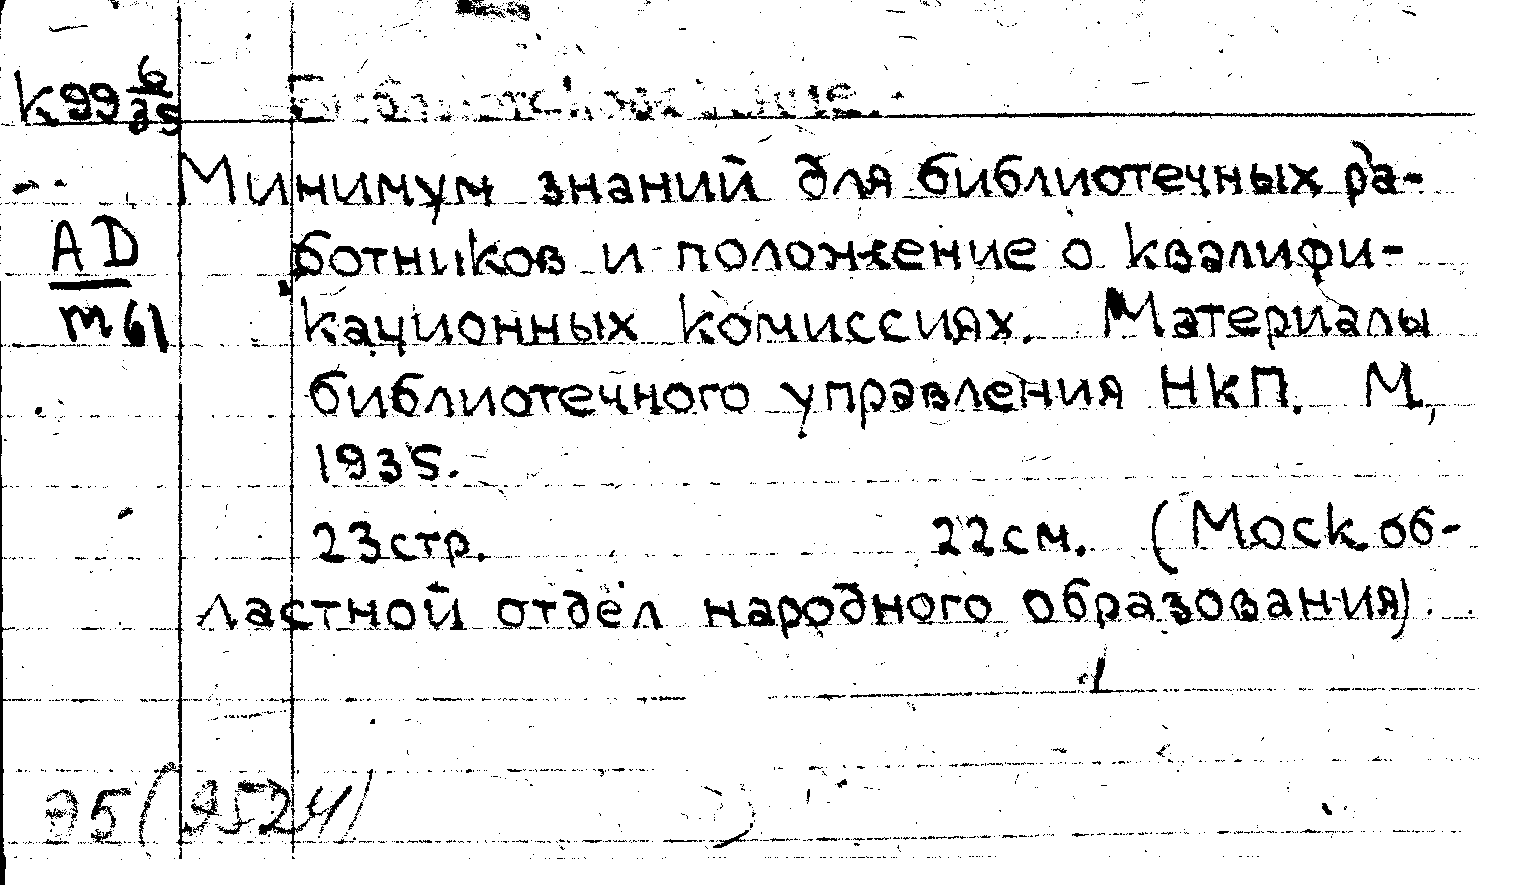 К99 6/35
Минимум знаний для библиотечных ра-
АД
ботников и положение о квалифи-
m61
кационных комиссиях. Материалы
библиотечного управления НКП. М,
1935.
23стр. 22см. (Моск об-
ластной отдел народного образования).